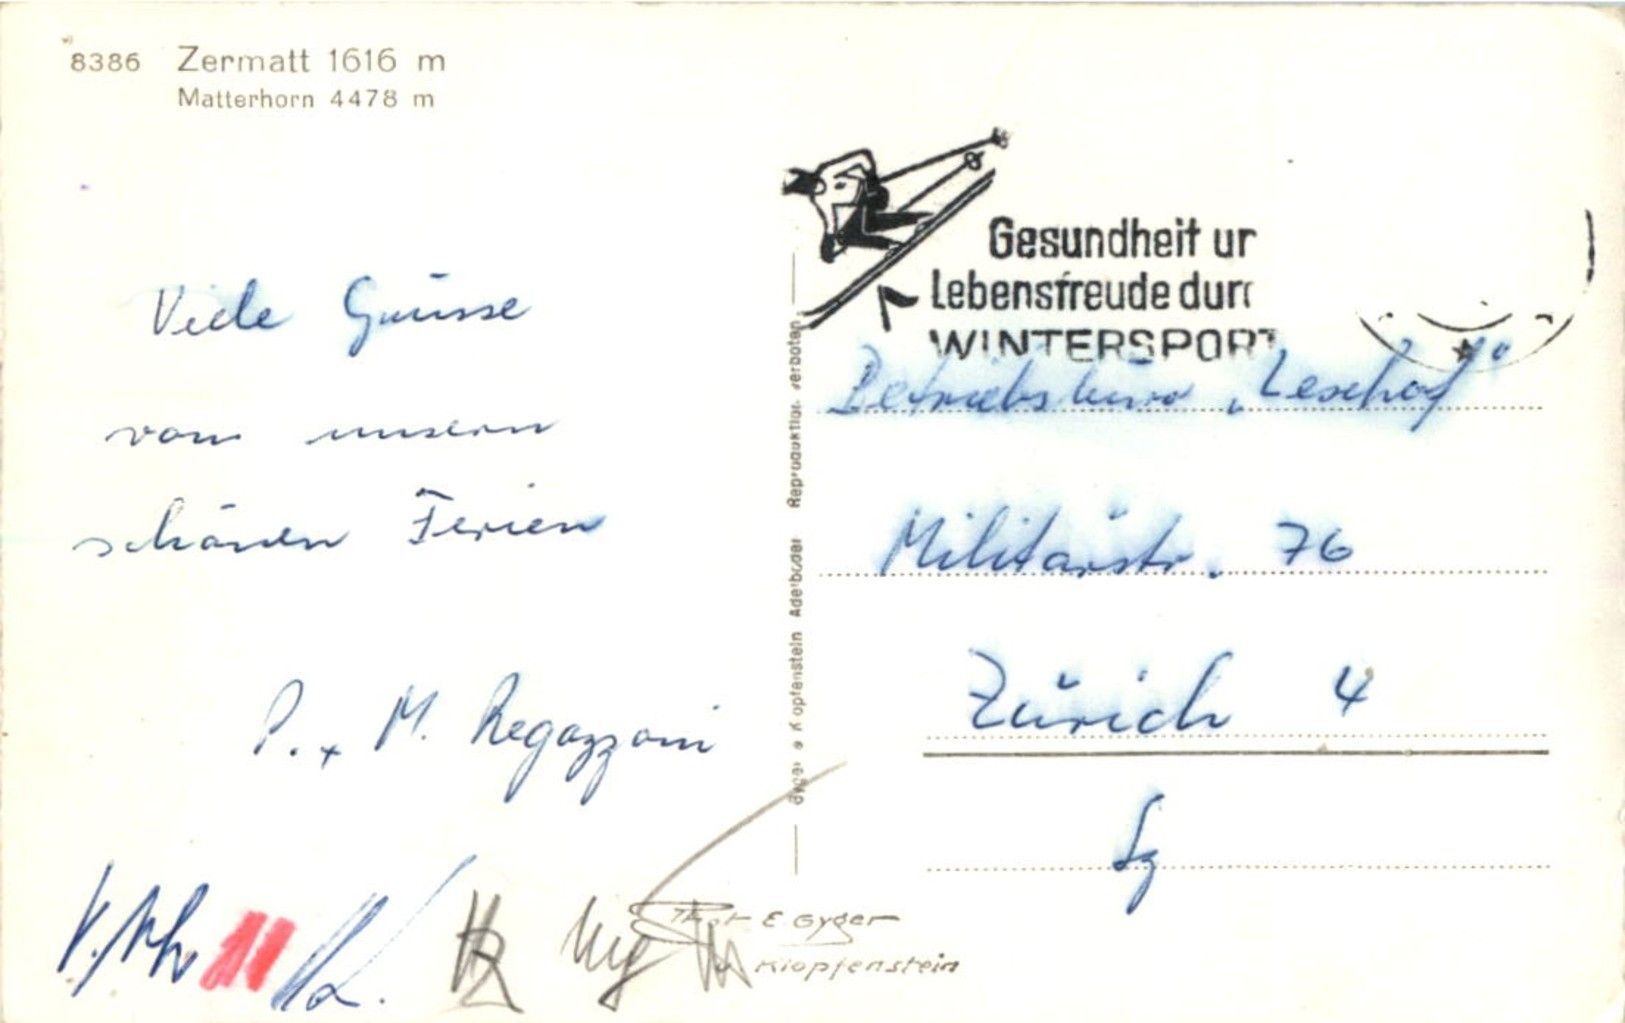 8386 Zermatt 1616 m
Matterhorn 4478 m
Gesundheit ur
Lebensfreude dur
WINTERSPORT
Viele Grüsse
vom unsern
schönen Ferien
P. + M. Regazzoni
Betriebsbüro „Leschof"
Militärstr. 76
Zürich 4
Gyger & Klopfenstein Adelboden Reproduktion verboten
Phot E. Gyger
Klopfenstein